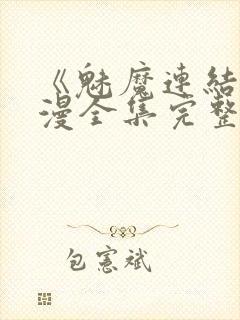 《魅魔連結
漫全集完整
包憲斌